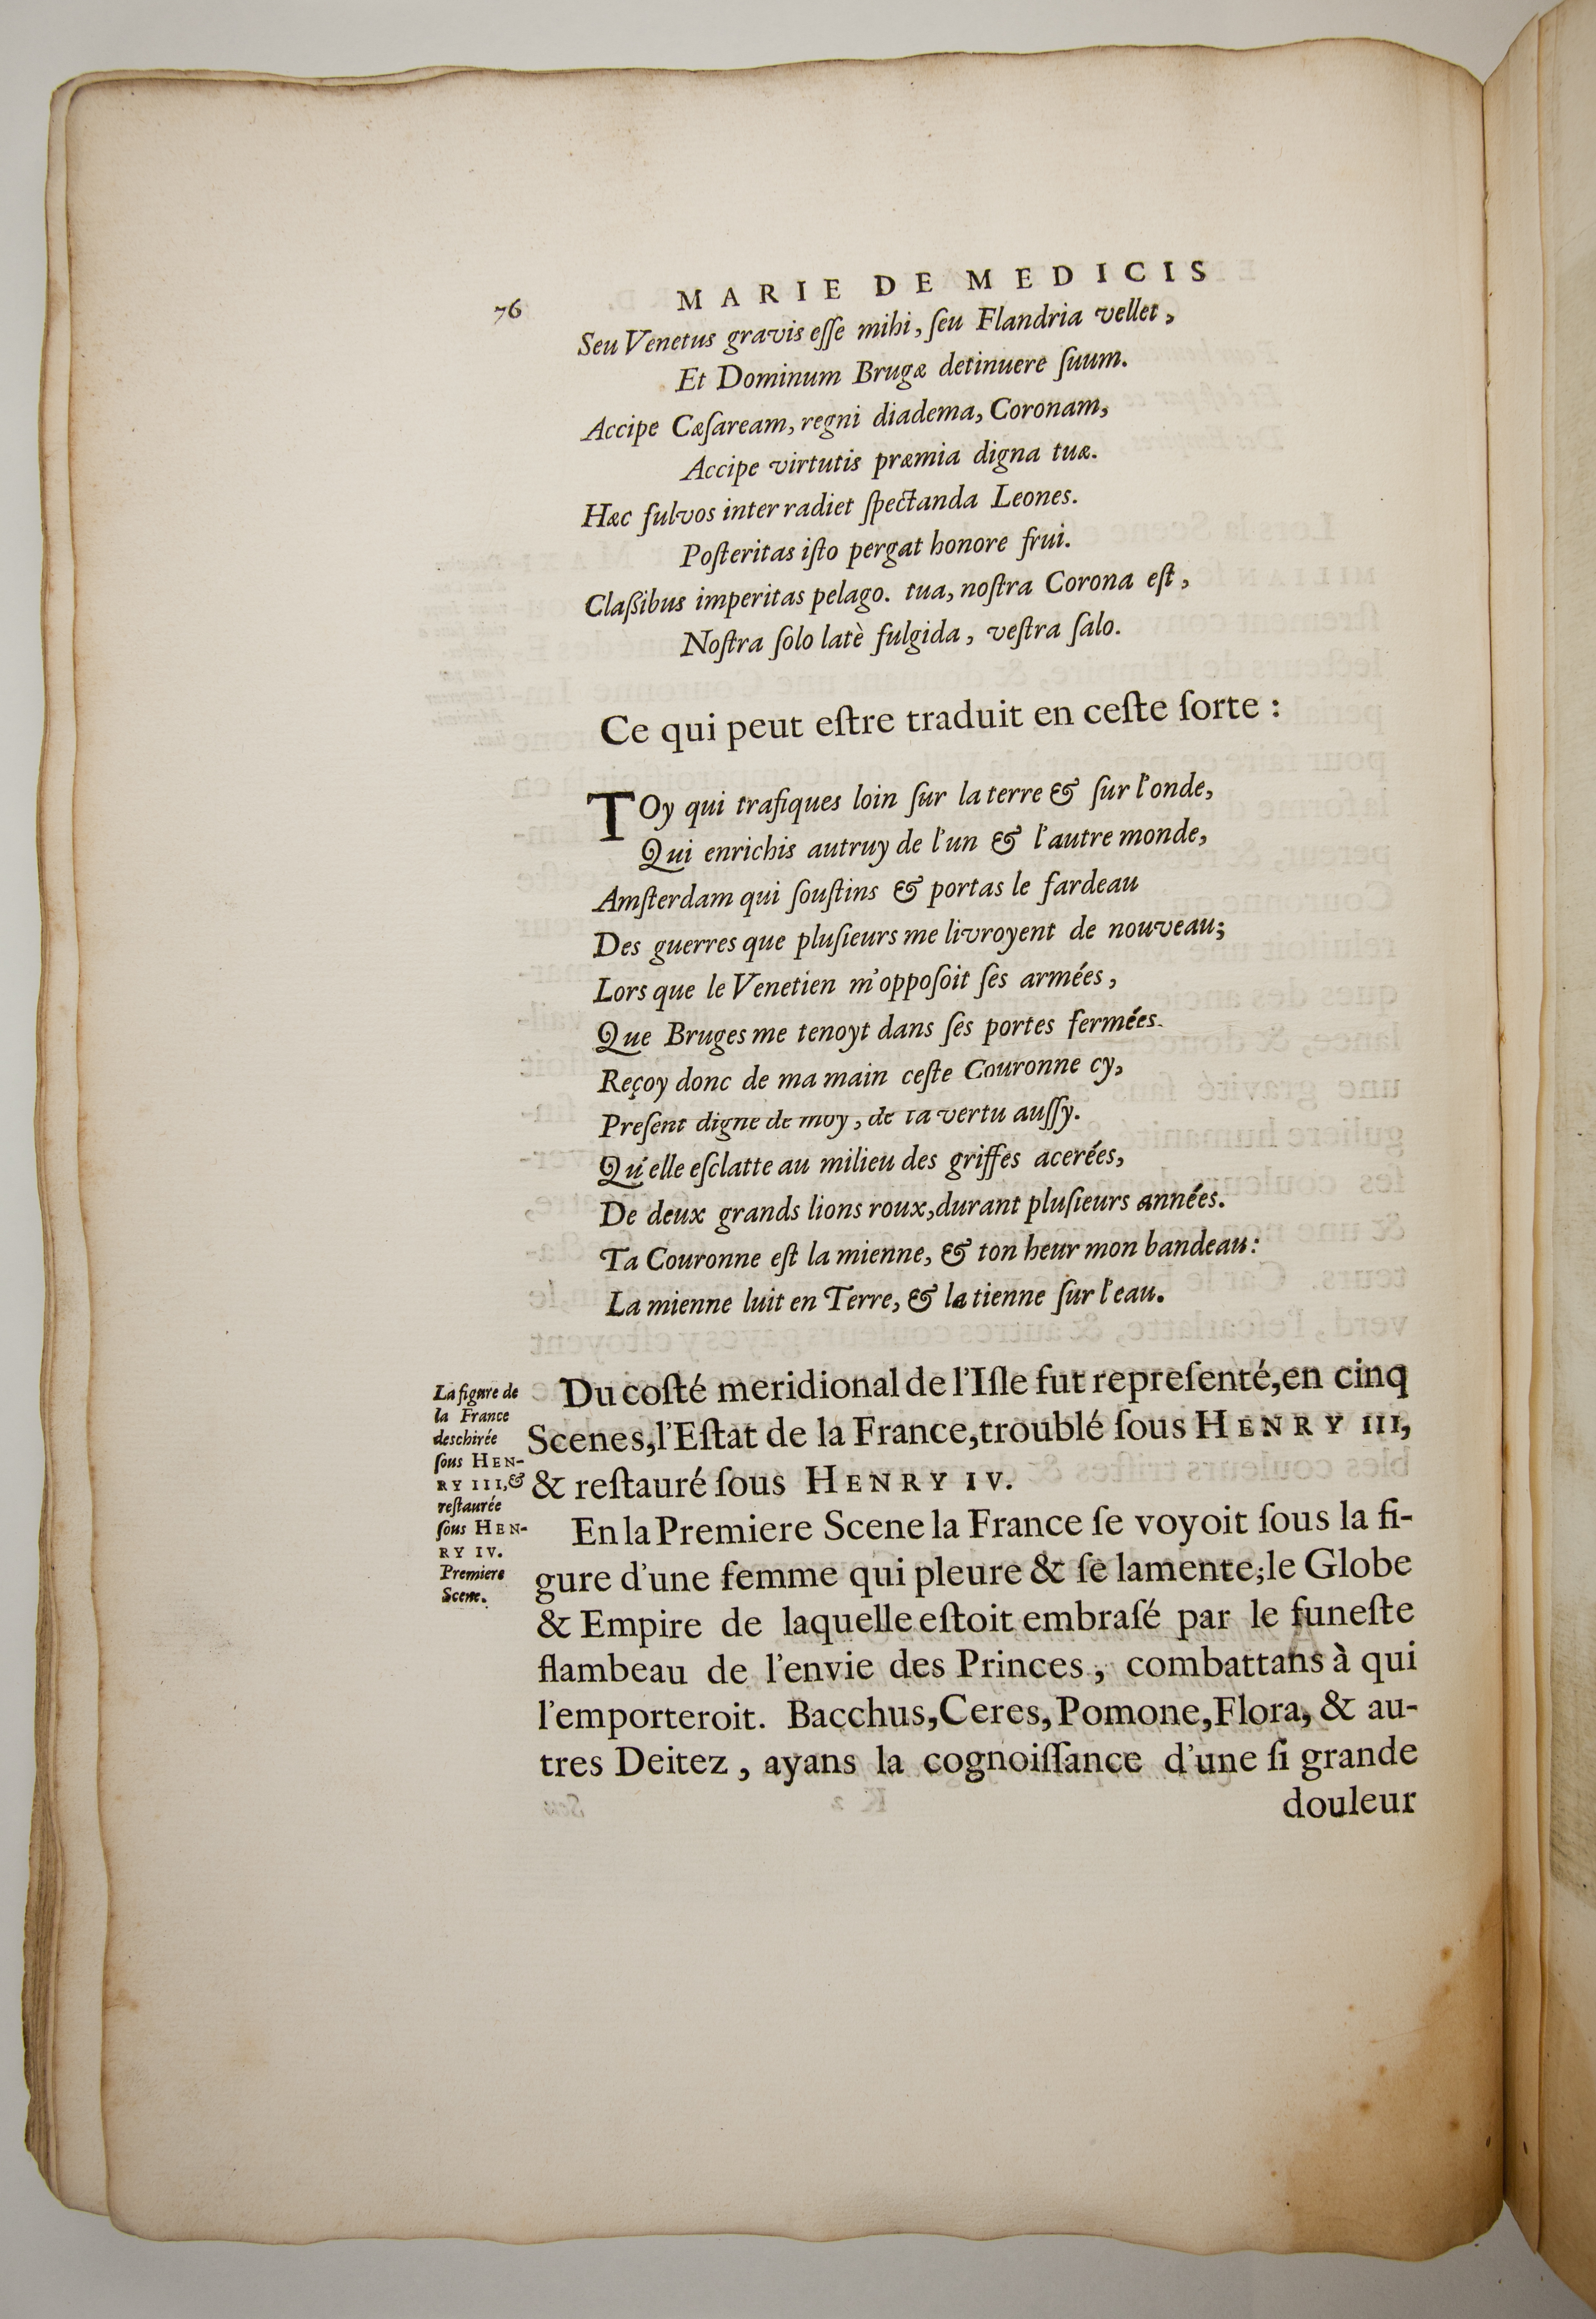 76
MARIE DE MEDICIS
Seu Venetus gravis eſſe mihi, ſeu Flandria vellet,
Et Dominum Brugæ detinuere ſuum.
Accipe Cæſaream, regni diadema, Coronam,
Accipe virtutis præmia digna tuæ.
Hæc fulvos inter radiet ſpectanda Leones.
Poſteritas iſto pergat honore frui.
Claßibus imperitas pelago. tua, noſtra Corona eſt,
Noſtra ſolo latè fulgida, veſtra ſalo.
Ce qui peut eſtre traduit en ceſte ſorte :
TOy qui trafiques loin ſur la terre & ſur l'onde,
Qui enrichis autruy de l'un & l'autre monde,
Amſterdam qui ſouſtins & portas le fardeau
Des guerres que pluſieurs me livroyent de nouveau;
Lors que le Venetien m'oppoſoit ſes armées,
Que Bruges me tenoyt dans ſes portes fermées.
Reçoy donc de ma main ceſte Couronne cy,
Preſent digne de moy, de ta vertu auſſy.
Qu'elle eſclatte au milieu des griffes acerées,
De deux grands lions roux, durant pluſieurs années.
Ta Couronne eſt la mienne, & ton heur mon bandeau:
La mienne luit en Terre, & la tienne ſur l'eau.
La figure de
la France
deschirée
ſous HEN-
RY III, &
reſtaurée
ſous HEN-
RY IV.
Premiere
Scene.
Du coſté meridional de l'Iſle fut repreſenté, en cinq
Scenes, l'Eſtat de la France, troublé ſous HENRY III,
& reſtauré ſous HENRY IV.
En la Premiere Scene la France ſe voyoit ſous la fi-
gure d'une femme qui pleure & ſe lamente; le Globe
& Empire de laquelle eſtoit embraſé par le funeſte
flambeau de l'envie des Princes, combattans à qui
l'emporteroit. Bacchus, Ceres, Pomone, Flora, & au-
tres Deitez, ayans la cognoiſſance d'une ſi grande
douleur